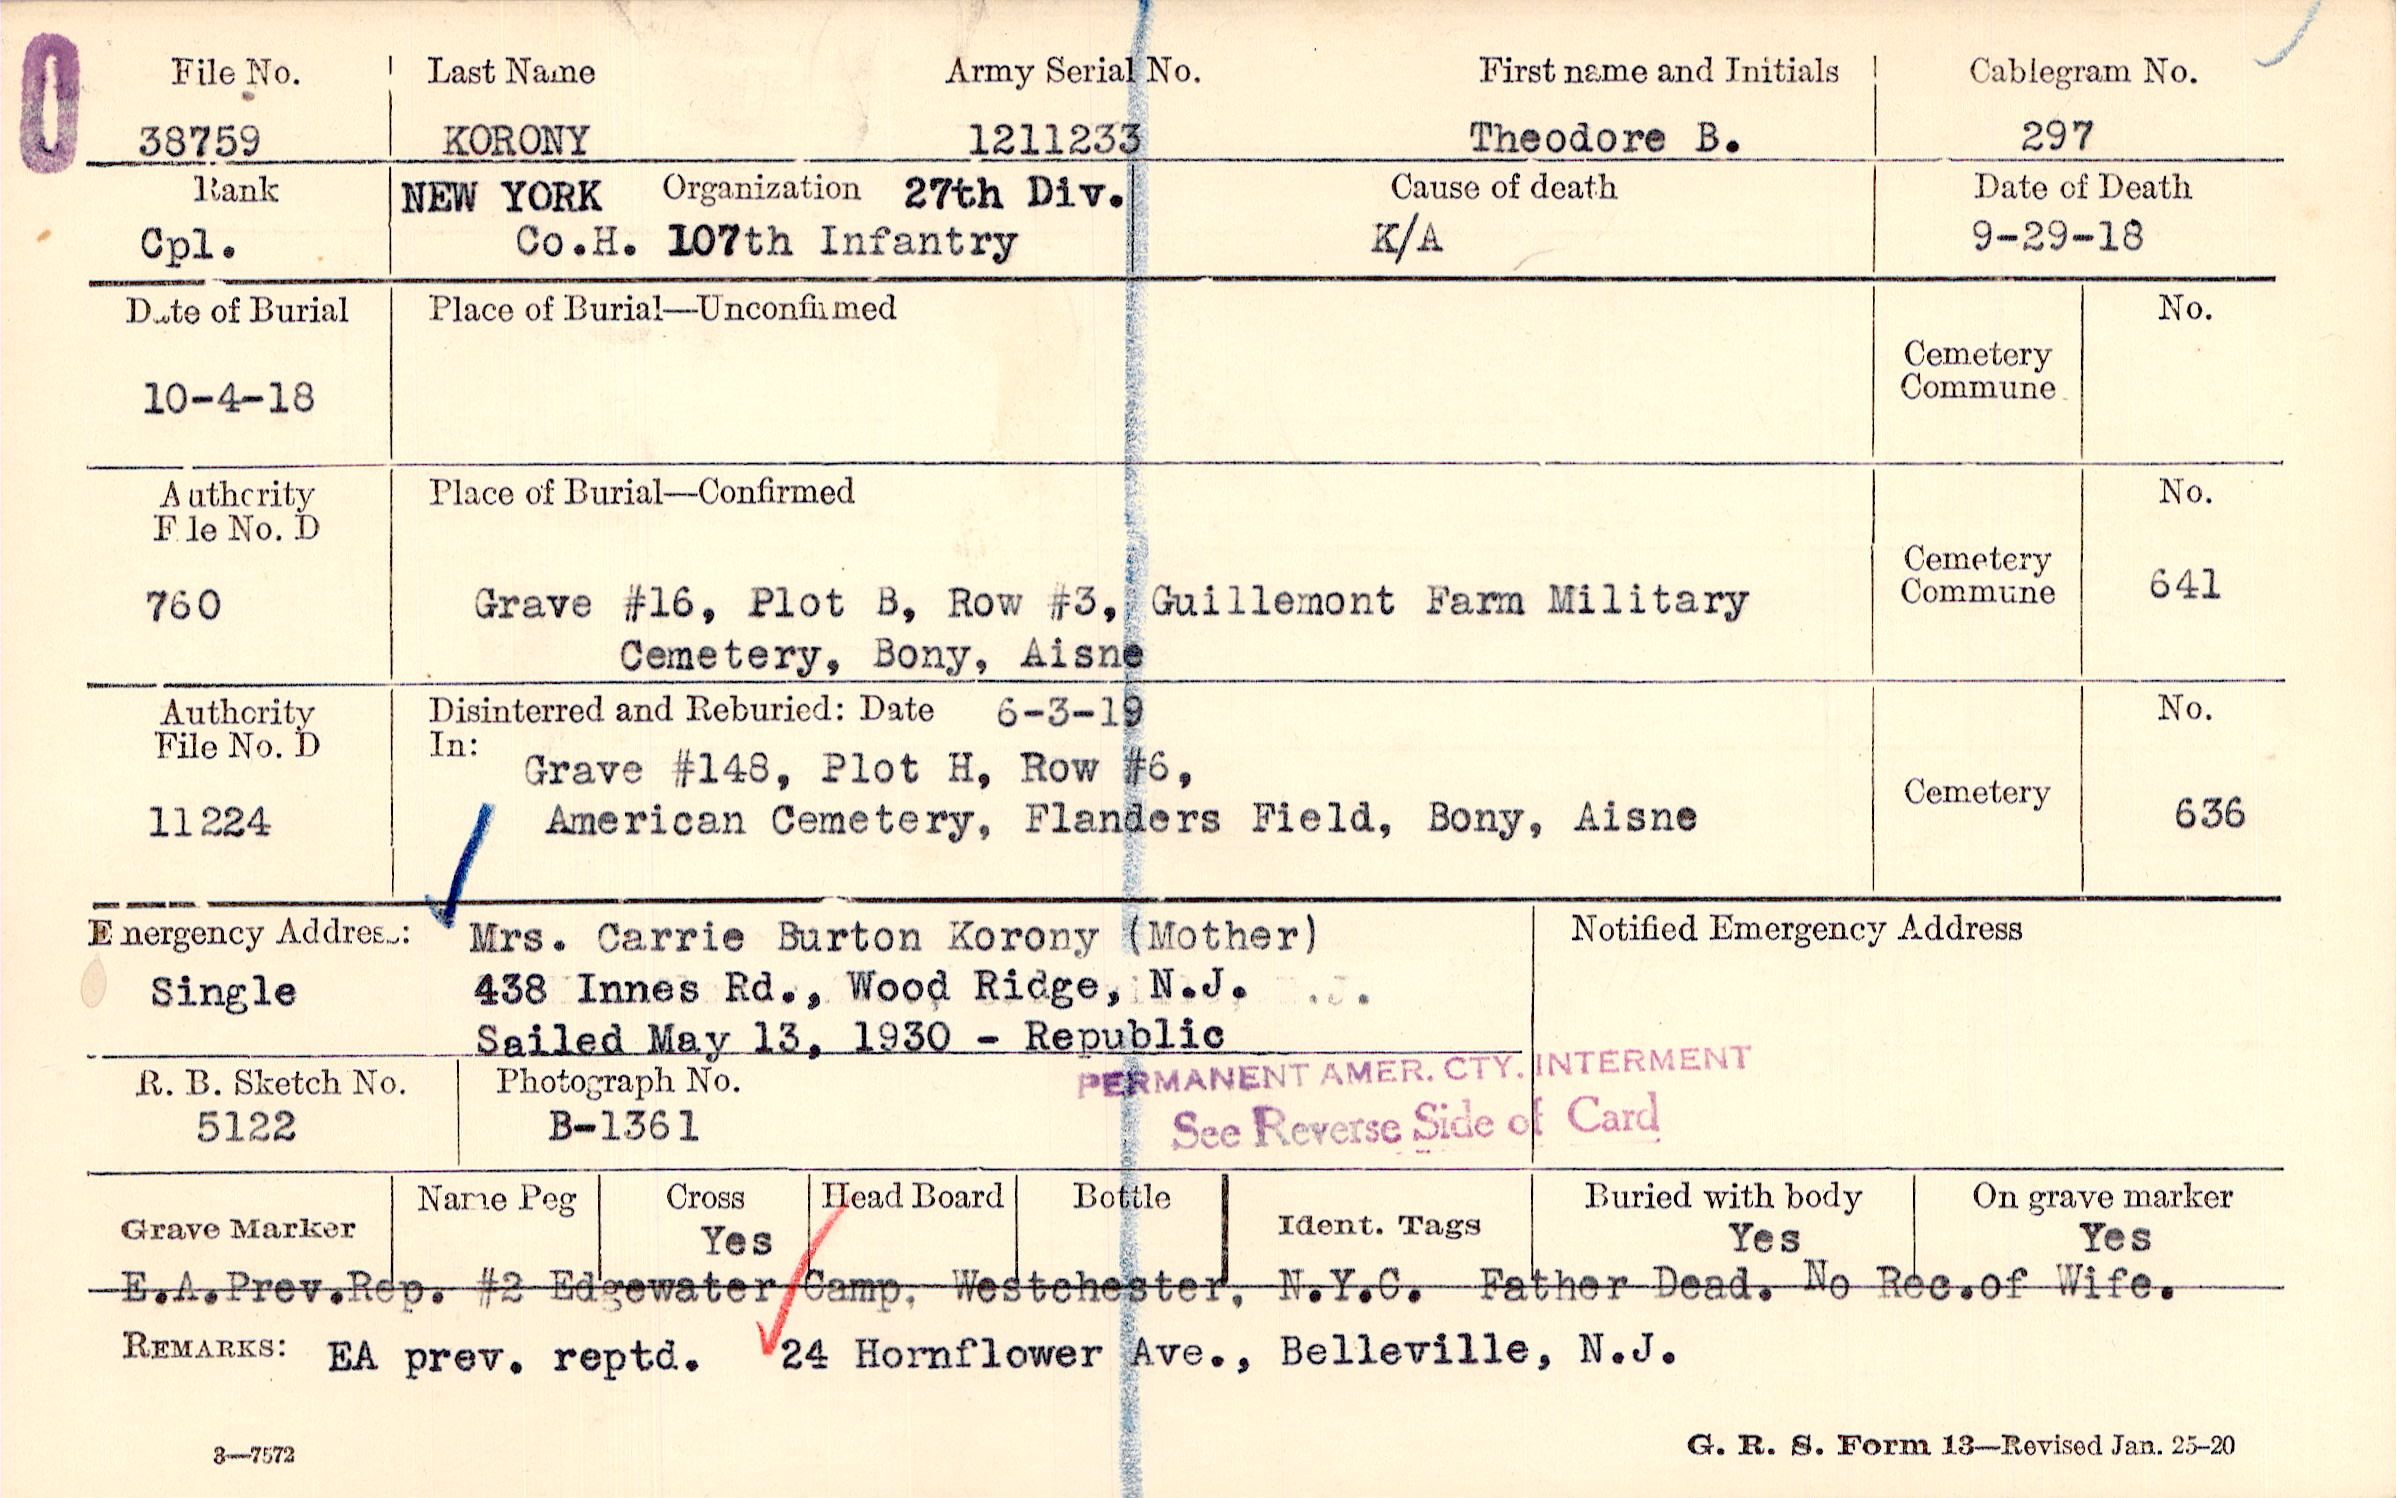 File No. Last Name Army Serial No. First name and Initials Cablegram No.
38759 KORONY 1211233 Theodore B. 297
Rank NEW YORK Organization 27th Div. Cause of death Date of Death
Cpl. Co.H. 107th Infantry K/A 9-29-18
Date of Burial Place of Burial—Unconfirmed No.
Cemetery
Commune
10-4-18
Authority Place of Burial—Confirmed No.
File No. D
Cemetery
Commune 641
760 Grave #16, Plot B, Row #3, Guillemont Farm Military
Cemetery, Bony, Aisne
Authority Disinterred and Reburied: Date 6-3-19 No.
File No. D In:
Grave #148, Plot H, Row #6,
Cemetery
11224 American Cemetery, Flanders Field, Bony, Aisne 636
Emergency Address: Mrs. Carrie Burton Korony (Mother) Notified Emergency Address
Single 438 Innes Rd., Wood Ridge, N.J.
Sailed May 13, 1930 - Republic
R. B. Sketch No. Photograph No. PERMANENT AMER. CTY. INTERMENT
5122 B-1361 See Reverse Side of Card
Grave Marker Name Peg Cross Head Board Bottle Ident. Tags Buried with body On grave marker
Yes Yes Yes
E.A.Prev.Rep. #2 Edgewater Camp, Westchester, N.Y.C. Father Dead. No Rec.of Wife.
REMARKS: EA prev. reptd. 24 Hornflower Ave., Belleville, N.J.
3—7572 G. R. S. Form 13—Revised Jan. 25-20